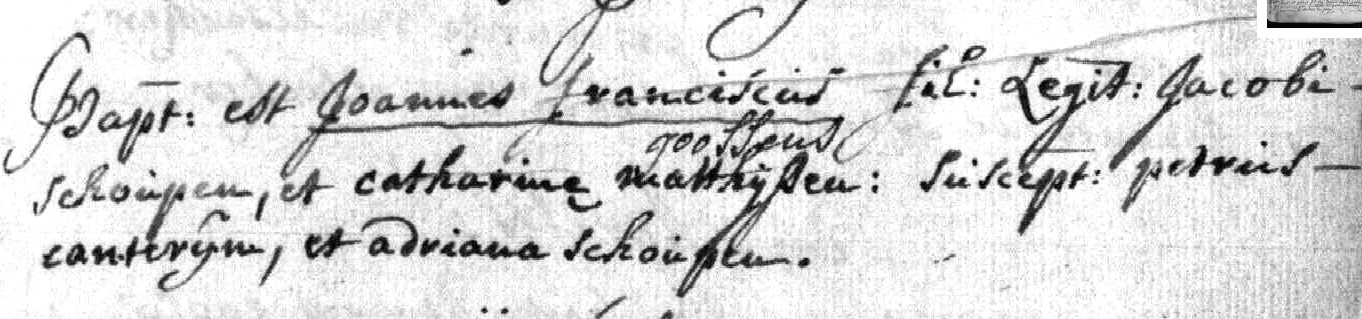 Bapt: est Joannes franciscus fil: Legit: Jacobi -
goossens
schoupen, et catharinę matthÿssen: suscept: petrus -
canterÿm, et adriana schoupen.